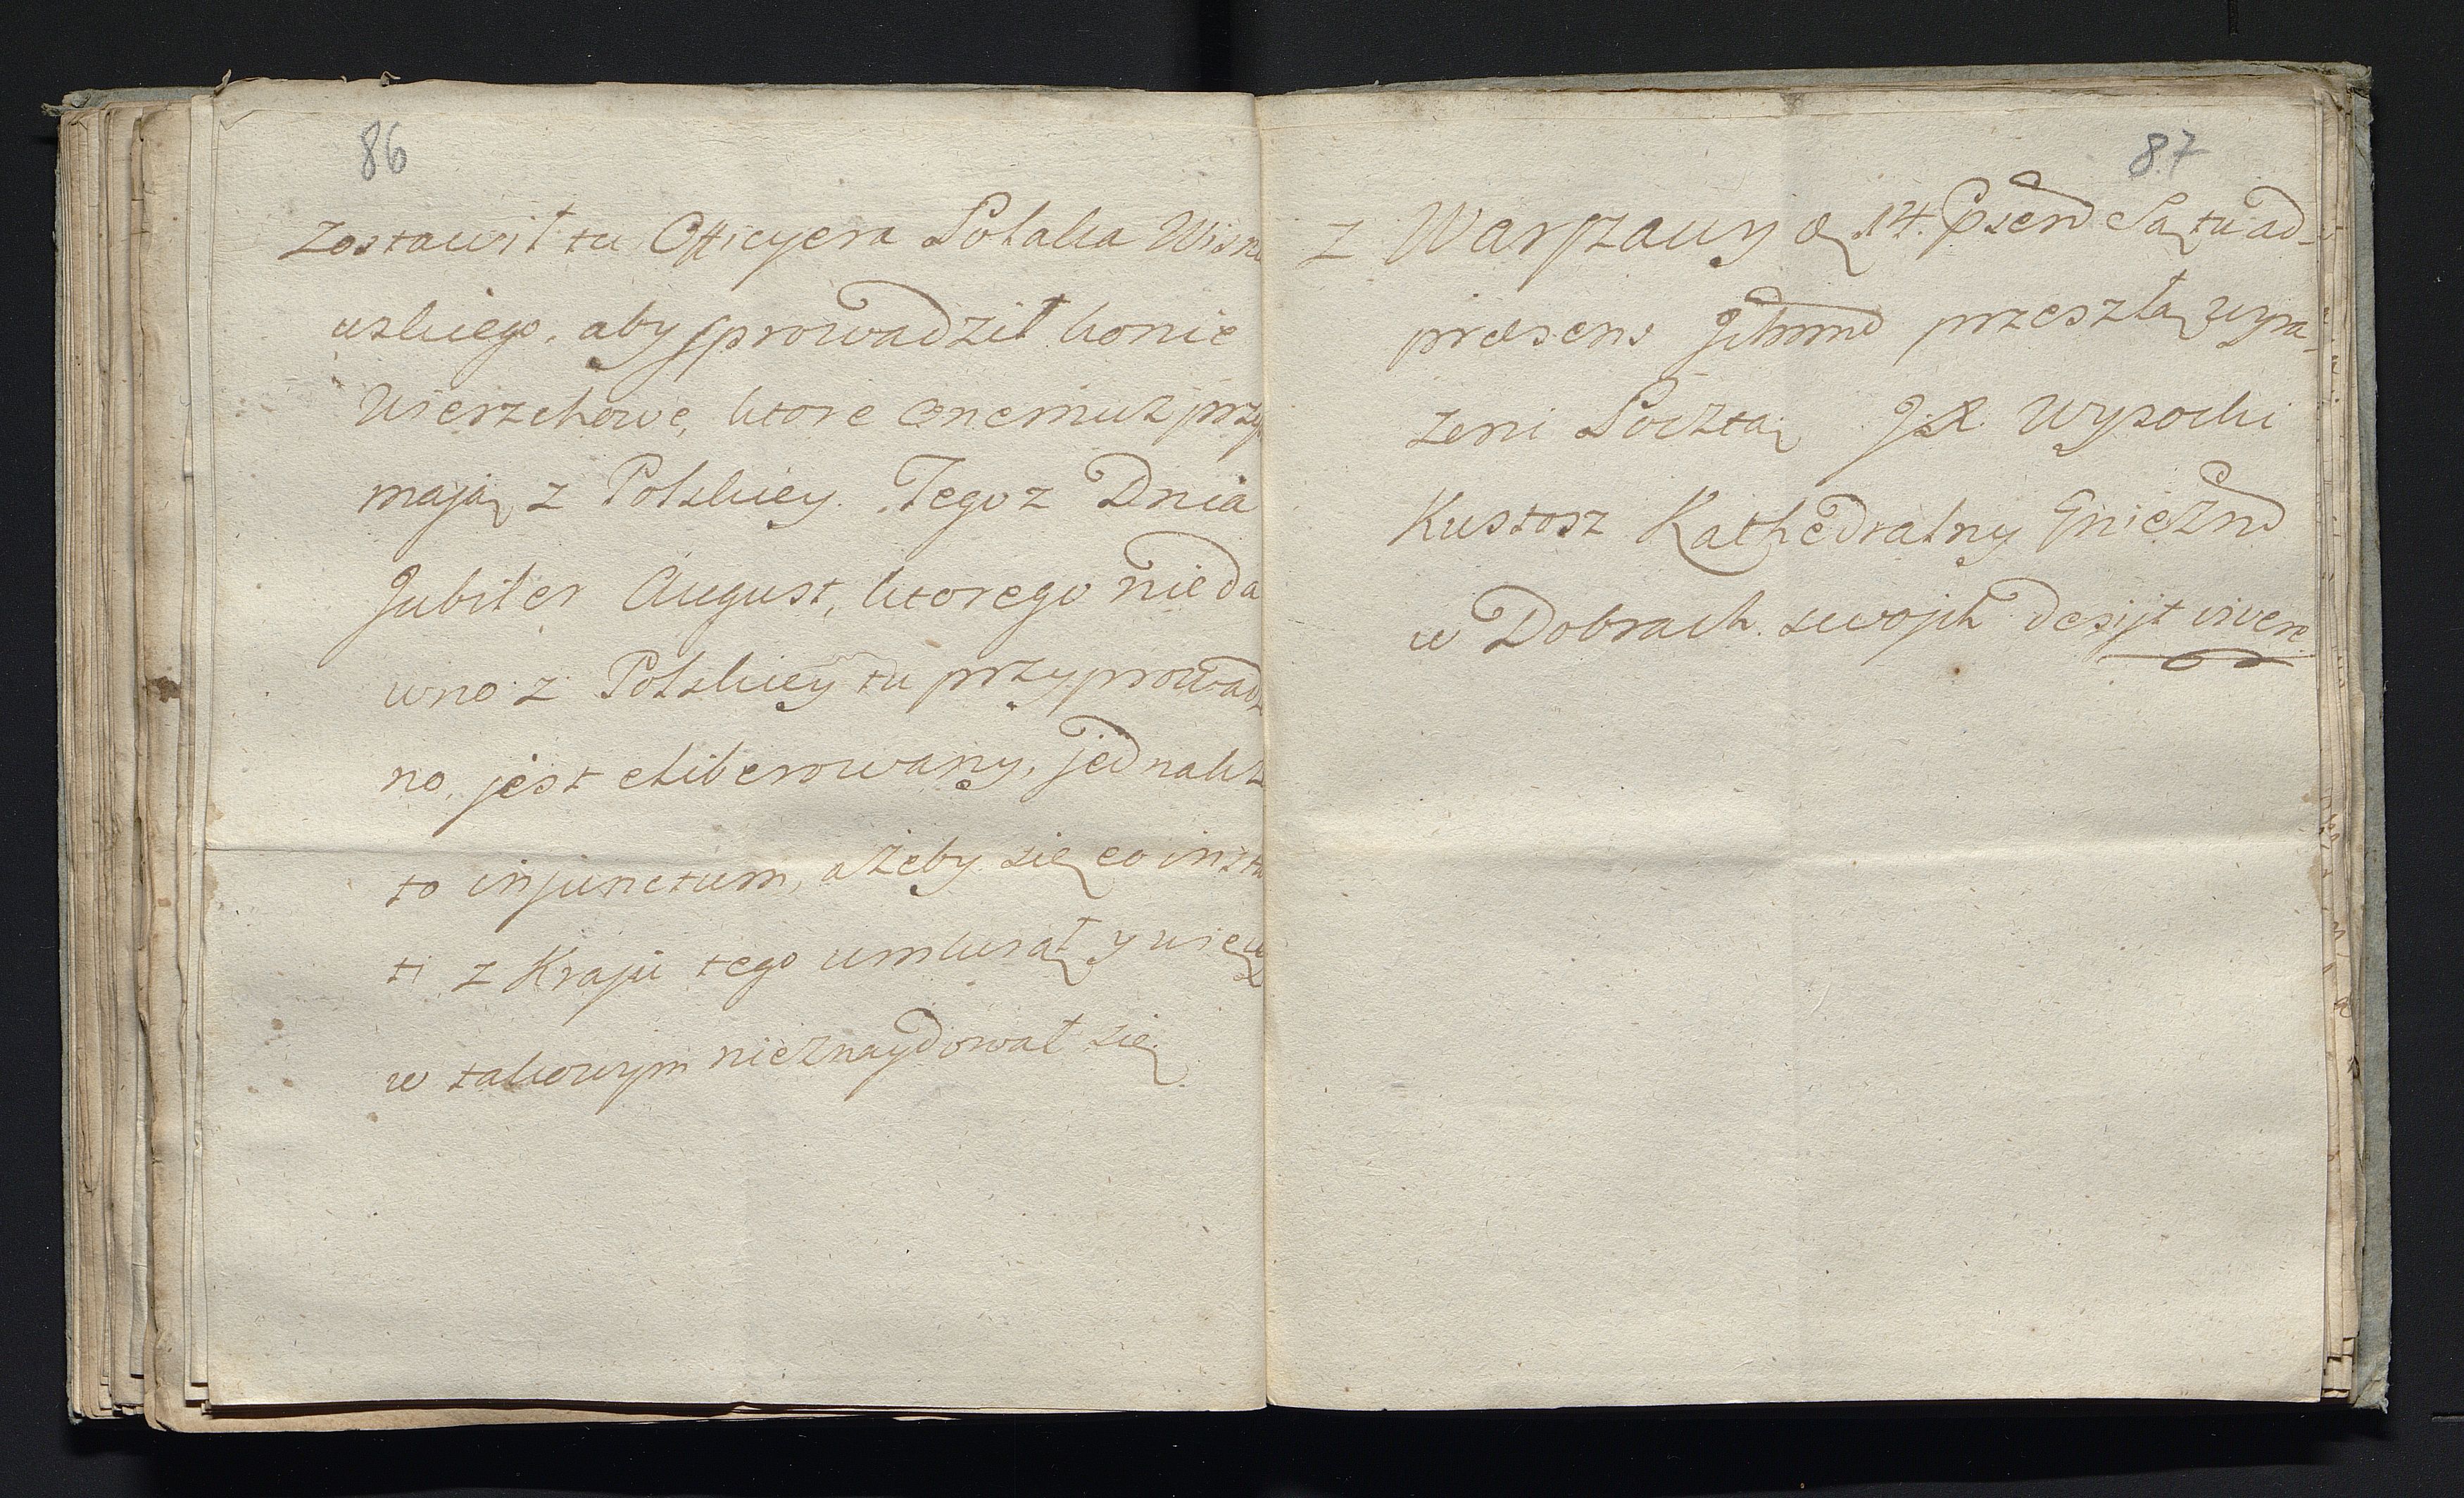 86
zostawił tu Officyera Polaka Wisnio
wskiego, aby sprowadził konie
Wierzchowe, ktore onemuz przy
mają z Polskiey. Tegoz Dnia
Jubiler August, ktorego nieda
wno z Polskiey tu przyprowadz
no, jest eliberowany, jednakz
to injunctum, ażeby się co insta
ti z Kraju tego umknął y więcey
w takowym nieznaydował się
87
z Warszawy d 14. Psend Są tu ad-
praesens Ichmd przeszłą wyra-
zeni Pocztą JX. Wysocki
Kustosz Kathedralny Gnieznd
w Dobrach swojch desijt vivere